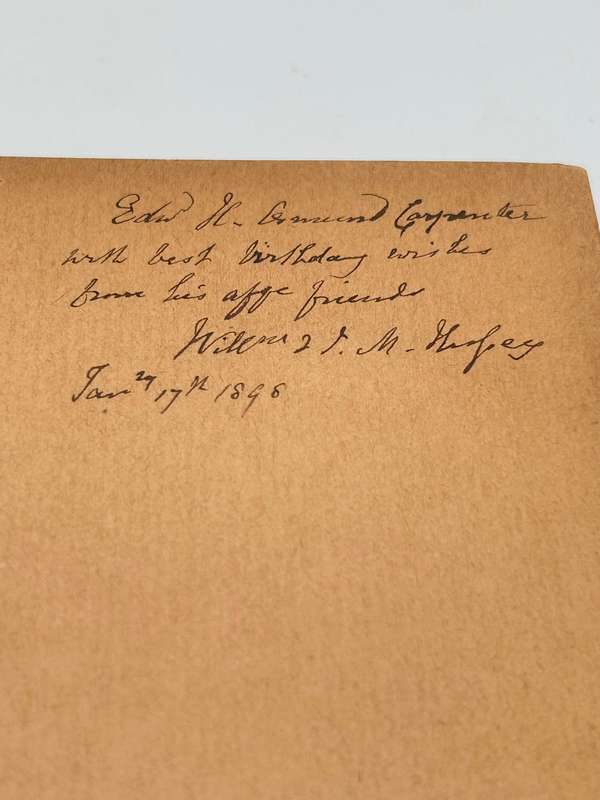 Edwd H. Osmund Carpenter
with best birthday wishes
from his affte friends
Willm & J. M.
Jany 17th 1898